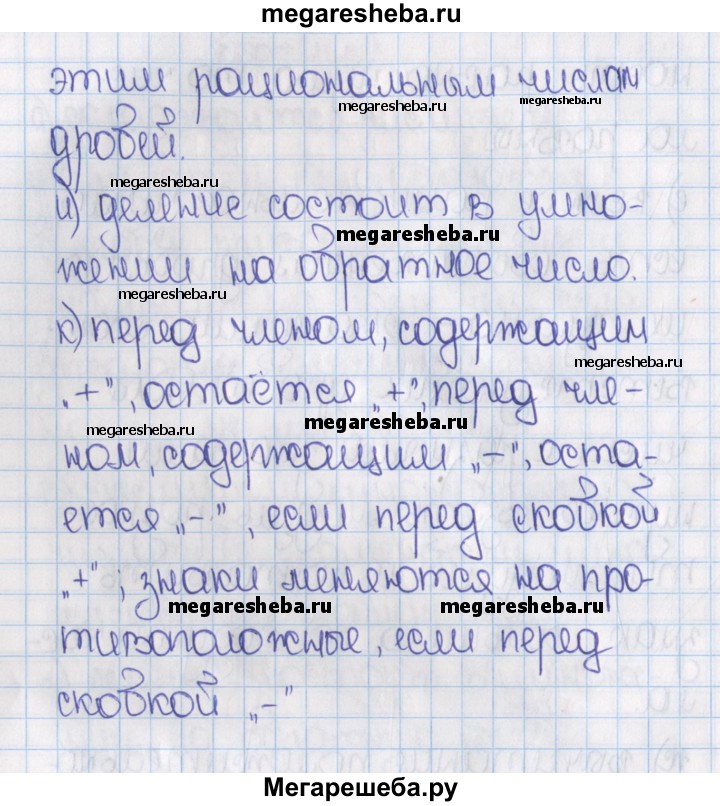 megaresheba.ru
этим рациональным числам
megaresheba.ru
megaresheba.ru
дробей.
megaresheba.ru
и) деление состоит в умно-
megaresheba.ru
жении на обратное число.
megaresheba.ru
к) перед членом, содержащим
megaresheba.ru
„+", остаётся „+", перед чле-
megaresheba.ru
megaresheba.ru
ном, содержащим „-", оста-
ется „-", если перед скобкой
„+"; знаки меняются на про-
megaresheba.ru
megaresheba.ru
тивоположные, если перед
скобкой „-"
Мегарешеба.ру